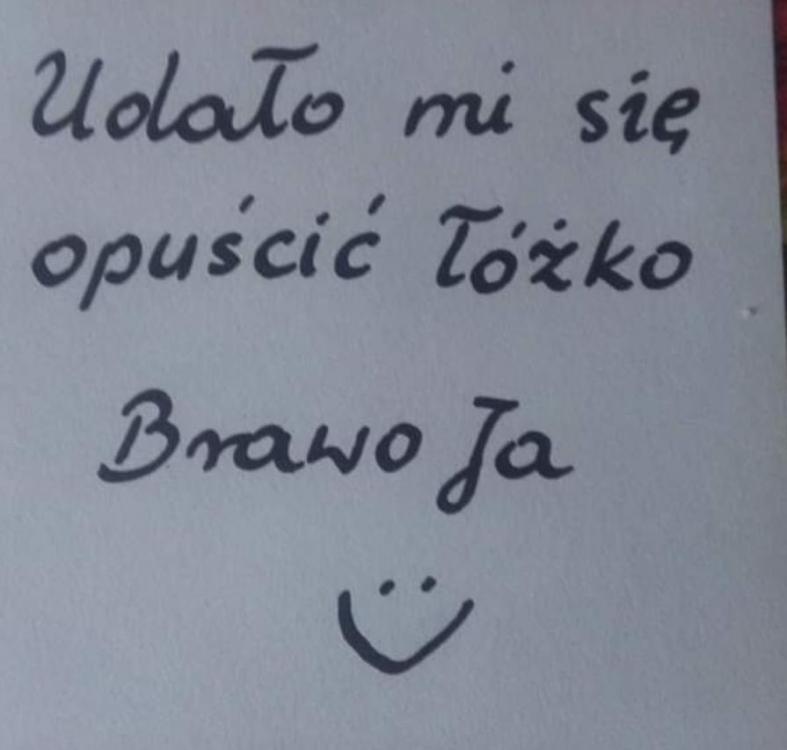 Udało mi się
opuścić łóżko
Brawo Ja